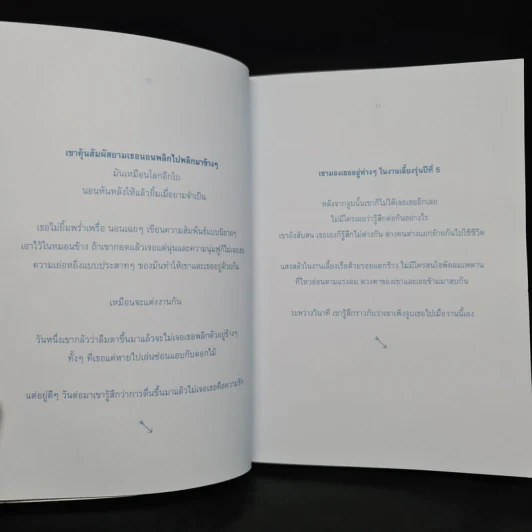 เขาคุ้นสัมผัสยามเธอนอนพลิกไปพลิกมาข้างๆ
มันเหมือนโลกอีกใบ
นอนหันหลังให้แล้วยิ้มเมื่อยามจำเป็น
เธอไม่ยิ้มพร่ำเพรื่อ นอนเฉยๆ เขียนความสัมพันธ์แบบนิยายๆ
เอาไว้ในหมอนข้าง ถ้าเขากอดแล้วเจอแต่นุ่นและความนุ่มฟูก็ไม่เจอเธอ
ความเย่อหยิ่งแบบประสาทๆ ของมันทำให้เขาและเธออยู่ด้วยกัน
เหมือนจะแต่งงานกัน
วันหนึ่งเขากลัวว่าลืมตาขึ้นมาแล้วจะไม่เจอเธอพลิกตัวอยู่ข้างๆ
ทั้งๆ ที่เธอแค่หายไปเล่นซ่อนแอบกับดอกไม้
แต่อยู่ดีๆ วันต่อมาเขารู้สึกว่าการตื่นขึ้นมาแล้วไม่เจอเธอคือความรัก
เขามองเธออยู่ห่างๆ ในงานเลี้ยงรุ่นปีที่ 5
หลังจากจูบนั้นเขาก็ไม่ได้เจอเธออีกเลย
ไม่มีใครเผยว่ารู้สึกต่อกันอย่างไร
เขายังสับสน เธอเองก็รู้สึกไม่ต่างกัน ต่างคนต่างแยกย้ายกันไปใช้ชีวิต
แสงสลัวในงานเลี้ยงเรือด้วยรอยแตกร้าว ไม่มีใครสนใจพัดลมเพดาน
ที่ไหวอ่อนตามแรงลม ดวงตาของเขาและเธอข้ามมาสบกัน
ระหว่างวินาที เขารู้สึกราวกับว่าเขาเพิ่งจูบเธอไปเมื่อวานนี้เอง